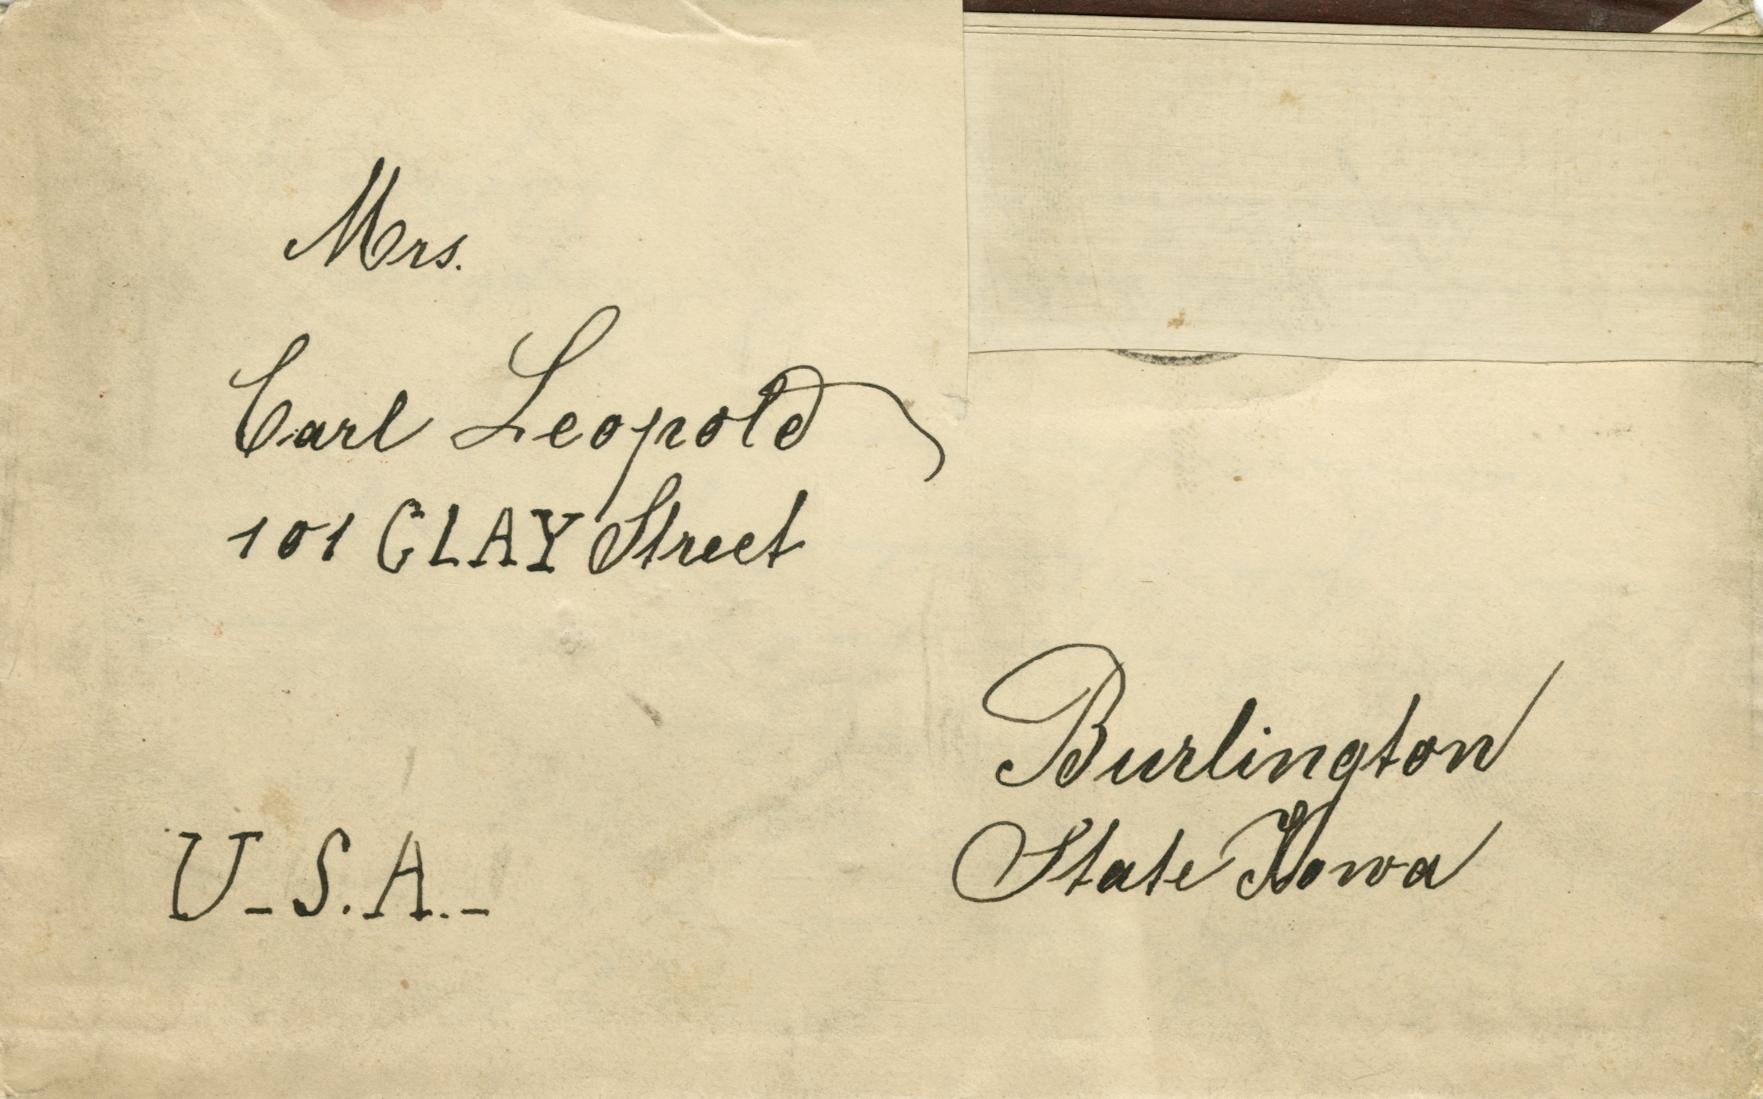 Mrs.
Carl Leopold
101 CLAY Street
Burlington
State Iowa
U_S.A._